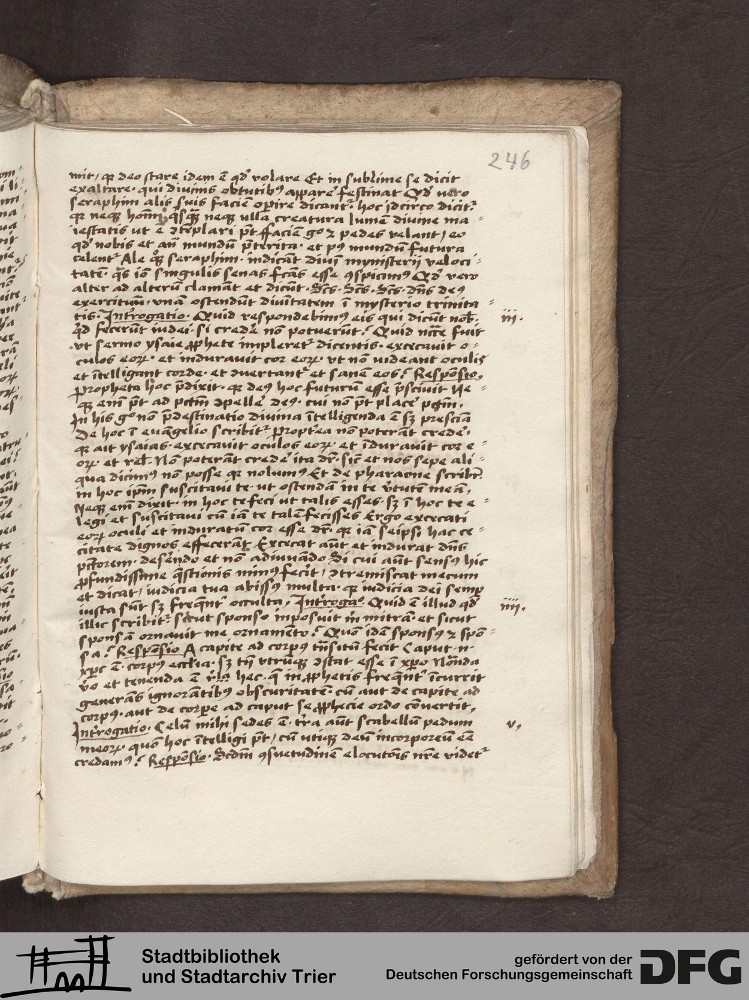 246
mit, qꝛ deo stare idem ē qd' volare Et in sublime se dicit
exaltare · qui divinis obtutibꝰ aꝑpare festinat Qd' vero
seraphim alis suis faciē opire dicantᷣ hoc idcirco dicitᷣ
qꝛ neqꝫ neqꝫ ulla creatura lumē divine ma⸗
iestatis ut ē pt faciē gͦ ⁊ pedes velant, eo
qd' nobis et an̄ mundū p̄terita · et pꝰ mundū futura
celentᷣ Ale seraphim · indicāt divi mynisterij veloci⸗
tatē singulis senas esse ꝯspicimꝰ Qd' vero
alter ad alterū clamāt et dicūt · Sc̄s · Sc̄s · Sc̄s · dn̄s deꝰ
exercituū · vnā ostendūt diviītatem ī mysterio trinita⸗
tis · Int'rogatio · Quid respondebimꝰ eis qui dicūt nob̄
qd' fecerūt iudei · si cred'e nō potuerūt? Quid fuit
vt sermo ysaie ꝓphete impleretᷣ dicentis · excecavit o⸗
culos eoꝝ · et induravit cor eoꝝ vt nō videant oculis
et ītelligant corde · et ꝯvertantᷣ et sanē eos? Respōsio
Propheta hoc p̄dixit · qꝛ deꝰ hoc futurū esse p̄scivit Ne⸗
qꝫ em̄ pt ad deꝰ · cui nō pt place
In his gͦ nō p̄destinatio divina ītelligenda ē sꝫ presciā
De hoc ī evāgelio scribitᷣ Proptea nō poterāt crede
qꝛ ait ysaias · excecavit oculos eoꝝ et īduravit cor e⸗
oꝝ et rel' Nō poterāt crede ita dr̄ · sic̄ et nos sepe ali⸗
qua dicimꝰ nō posse qꝛ nolumꝰ Et de pharaone scribitᷣ
in hoc ip̄m suscitavi te · ut ostendā in te v̄tutē meā,
Neqꝫ em̄ dixit · in hoc te feci ut talis esses · sꝫ ī hoc te e⸗
legi et suscitavi cū iā te talē fecisses Ergo excecati
eoꝝ oculi et induratū cor esse dr̄ · qꝛ iā seipsi hac ce⸗
citate dignos effecerāt Excecat aūt et indurat dn̄s
pctōrem · desēndo et nō adiuvādo Si cui aūt sensꝰ hic
ꝓfundissime q̄stionis minꝰ fecit, ꝯtremiscat mecum
et dicat, iudicia tua abissꝰ multa · qꝛ iudicia dei semp
iusta sūt sꝫ freqn̄t occulta, Int'rogaͦ Quid ē illud qd'
illic scribitᷣ sicut sponso imposuit m̄ mitrā · et sicut
sponsā ornavit me ornamēto? Quō idē sponsꝰ ⁊ spō⸗
sa? Respōsio A capite ad corpꝰ tn̄sitū fecit Caput n̄
xp̄c ē · corpꝰ ecclīa · sꝫ tn̄ vtrūqꝫ ꝯstat esse ī xp̄o Nōnda
vͦo et tenenda ē hec · q̄ in ꝓphetis freqn̄t īcurrit
generās ignorātibꝰ obscuritatē · cū aut de capite ad
corpꝰ · aut de corpe ad caput se ꝓphecie ordo cōvertit,
Int'rogatio · Celū mihi sedes ē · tr̄a aūt scabellū pedum
meoꝝ · quō hoc ītelligi pt, cū utiqꝫ deū incorporeū eē
credamꝰ? Respōsio · Scdm̄ ꝯsuetudinē elocutōis nr̄e videtᷣ
iii.
iiii.
v.
Stadtbibliothek
und Stadtarchiv Trier
gefördert von der
Deutschen Forschungsgemeinschaft
DFG